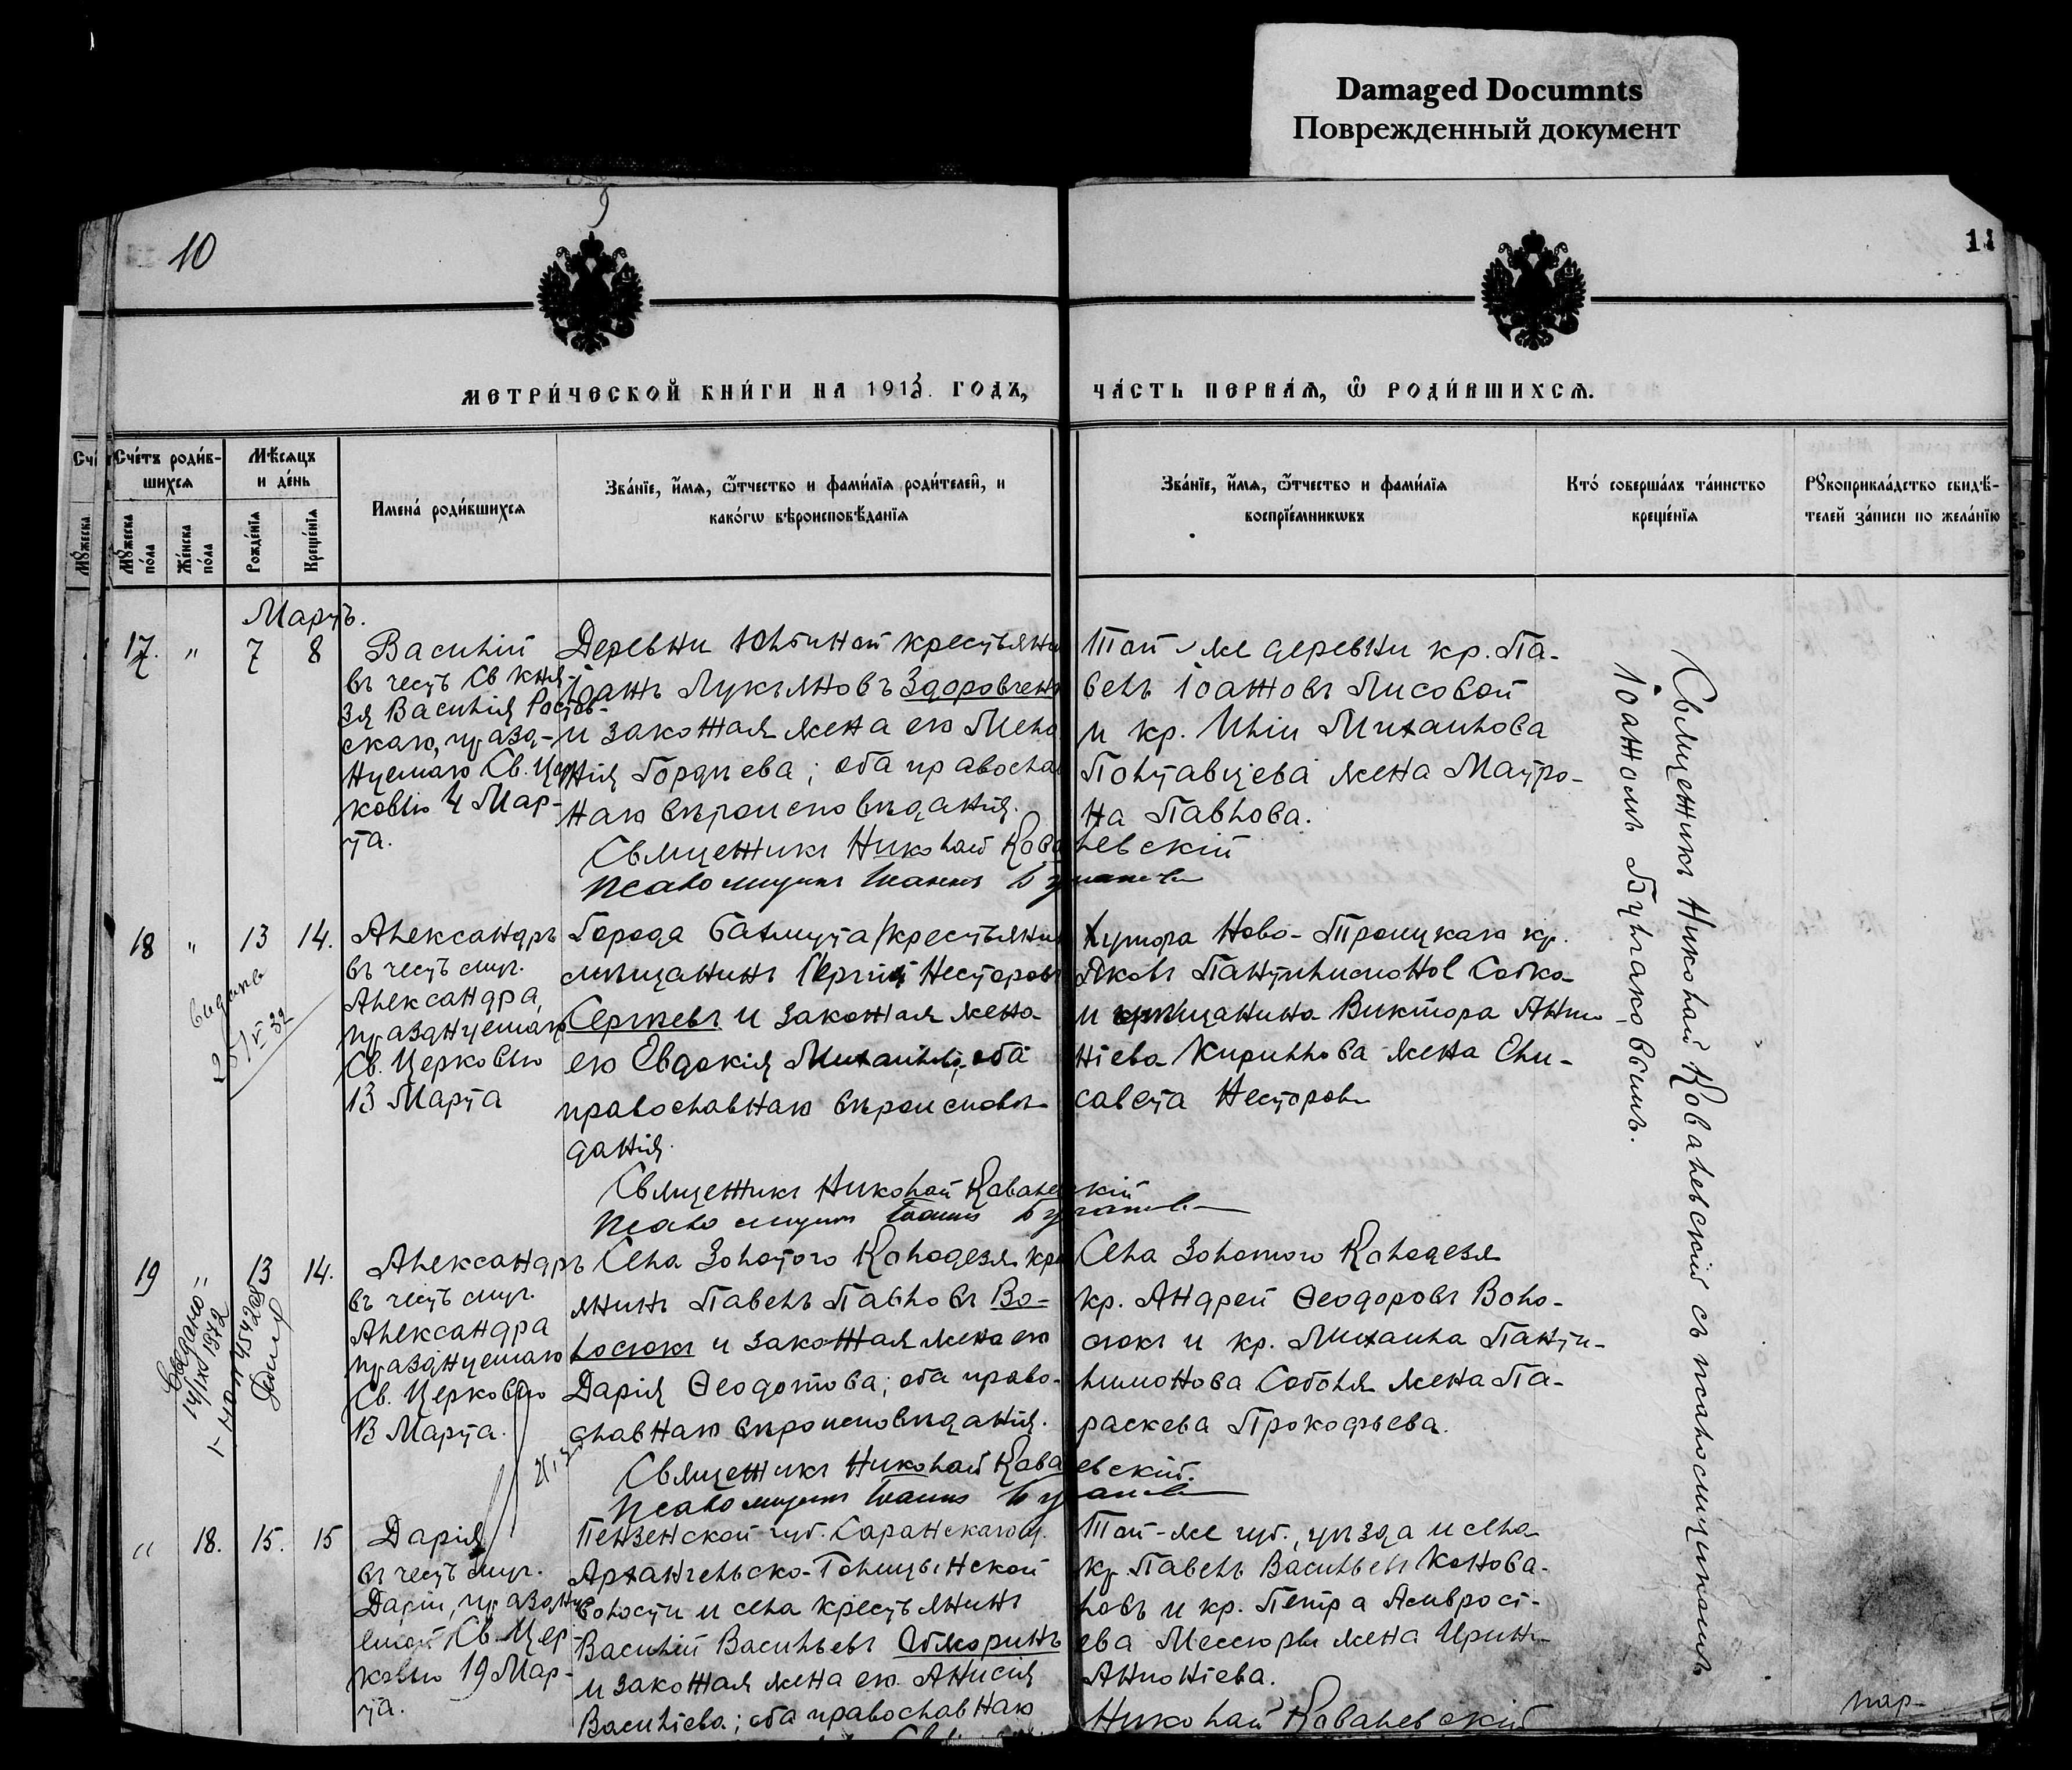 Damaged Documnts
Поврежденный документ
10
11
МЕТРИ́ЧЕСКОЙ КНИ́ГИ НА 1913. ГОДЪ,
ЧА́СТЬ ПЕРВА́Ѧ, Ѽ РОДИ́ВШИХСѦ.
Сче́тъ роди́в-
шихся
Мѣ́сяцъ
и де́нь
Мꙋ́жеска по́ла
Же́нска по́ла
Рожде́нїя
Креще́нїя
Имена̀ роди́вшихся
Зва́нїе, и́мя, ѻ҆́тчество и фами́лїя роди́телей, и
како́гѡ вѣроисповѣ́данїя
Зва́нїе, и́мя, ѻ҆́тчество и фами́лїя
воспрїе́мникѡвъ
Кто̀ соверша́лъ та́инство
креще́нїя
Рꙋкоприкла́дство свидѣ́-
телей за́писи по жела́нїю
Мартъ.
17. " 7 8
Василій
въ честь Св. кня-
зя Василія Ростов-
скаго, праздн-
нуемаго Св. Цер-
ковью 4 Мар-
та.
Деревни крестьянин
Іоаннъ Лукьяновъ Здоровчен
и законная жена его Мела
нія Гордіева; оба православ
наго вѣроисповѣданія.
Священникъ Николай Ковалевскій
Псаломщикъ Іоаннъ
Той же деревни кр. Па-
велъ Іоанновъ Лисовой
и кр. Иліи Михаилова
Полтавцева жена Матро-
на Павлова.
18 " 13 14.
Александръ
въ честь муч.
Александра,
празднуемаго
Св. Церковью
13 Марта
Города Бахмута /крестьянин
мѣщанинъ Сергій Несторовъ
Сергѣевъ и законная жена
его Евдокія Михаилова; оба
православнаго вѣроисповѣ-
данія.
Священникъ Николай Ковалевскій
Псаломщикъ Іоаннъ
Хутора Ново-Троицкаго кр.
Яковъ Пантелимонов Собко
и мѣщанина Виктора Анто-
ніева Кириллова жена Ели-
савета Несторова
19 " 13 14.
Александръ
въ честь муч.
Александра
празднуемаго
Св. Церковью
13 Марта.
Села Золотого Колодезя кре
янинъ Павелъ Павловъ Во-
лосюкъ и законная жена его
Дарія Ѳеодотова; оба право-
славнаго вѣроисповѣданія.
Священникъ Николай Ковалевскій.
Псаломщикъ Іоаннъ
Села Золотого Колодезя
кр. Андрей Ѳеодоровъ Воло-
сюкъ и кр. Михаила Панте-
лимонова Соболя жена Па-
раскева Прокофьева.
" 18. 15. 15
Дарія
въ честь муч.
Даріи, праздну-
емой Св. Цер-
ковью 19 Мар-
та.
Пензенской губ. Саранскаго у.
Архангельско-Голицынской
волости и села крестьянинъ
Василій Васильевъ Обморинъ
и законная жена его Анисія
Василіева; оба православнаго
Той-же губ., уѣзда и села
кр. Павелъ Васильевъ Конова-
ловъ и кр. Петра Амвросі-
ева жена Ирина
Антоніева.
Николай Ковалевскій
Священникъ Николай Ковалевскій съ псаломщикомъ
Іоанномъ Булаковымъ.